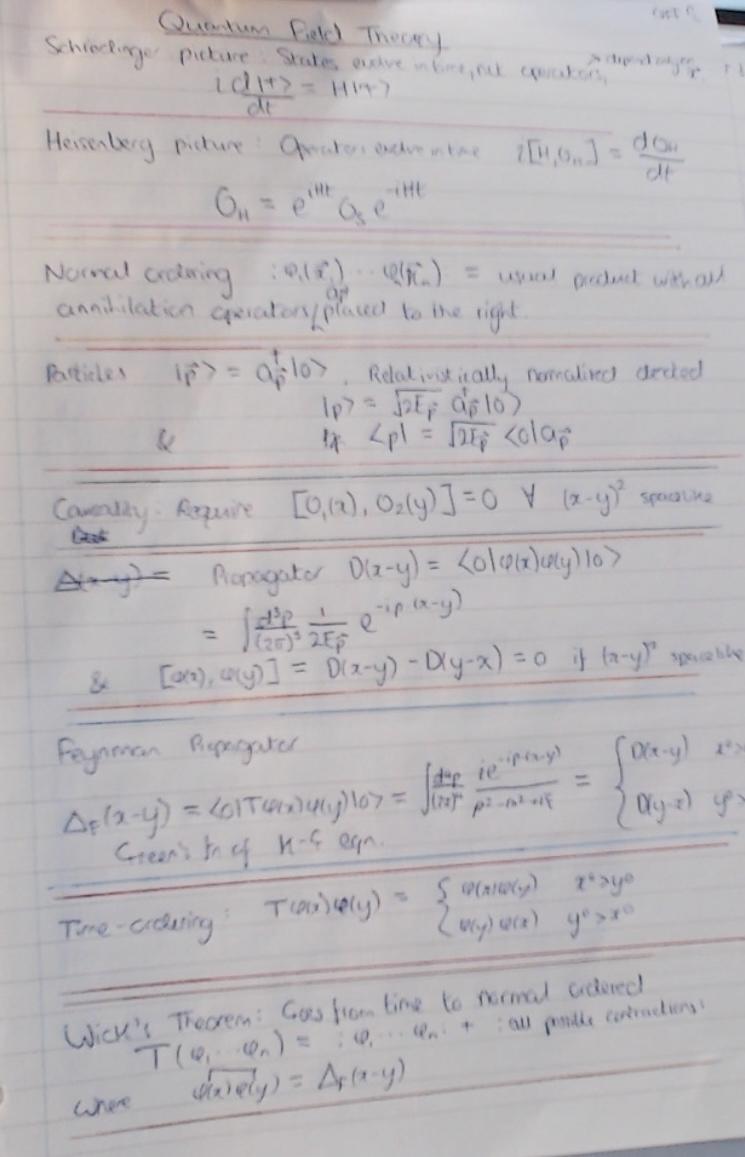 Quantum Field Theory
Schrodinger picture: States evolve in time, not operators,
i d|ψ>/dt = H|ψ>
Heisenberg picture: Operators evolve in time i[H, O_H] = dO_H/dt
O_H = e^{iHt} O_S e^{-iHt}
Normal ordering :φ₁(x⃗₁) ... φₙ(x⃗ₙ) = usual product with all
annihilation operators a_p⃗ placed to the right.
Particles |p⃗> = a†_p⃗|0>. Relativistically normalised
|p> = √(2E_p⃗) a†_p⃗|0>
& <p| = √(2E_p⃗) <0|a_p⃗
Causality: Require [O₁(x), O₂(y)] = 0 ∀ (x-y)² spacelike
Propagator D(x-y) = <0|φ(x)φ(y)|0>
= ∫ d³p/(2π)³ 1/(2E_p⃗) e^{-ip(x-y)}
& [φ(x), φ(y)] = D(x-y) - D(y-x) = 0 if (x-y)² spacelike
Feynman Propagator
Δ_F(x-y) = <0|Tφ(x)φ(y)|0> = ∫ d⁴p/(2π)⁴ ie^{-ip(x-y)}/(p²-m²+iε) = { D(x-y) x⁰>
D(y-x) y⁰>
Green's fn of K-G eqn.
Time-ordering: Tφ(x)φ(y) = { φ(x)φ(y) x⁰>y⁰
φ(y)φ(x) y⁰>x⁰
Wick's Theorem: Goes from time to normal ordered
T(φ₁...φₙ) = :φ₁...φₙ: + :all possible contractions:
where φ(x)φ(y) = Δ_F(x-y)